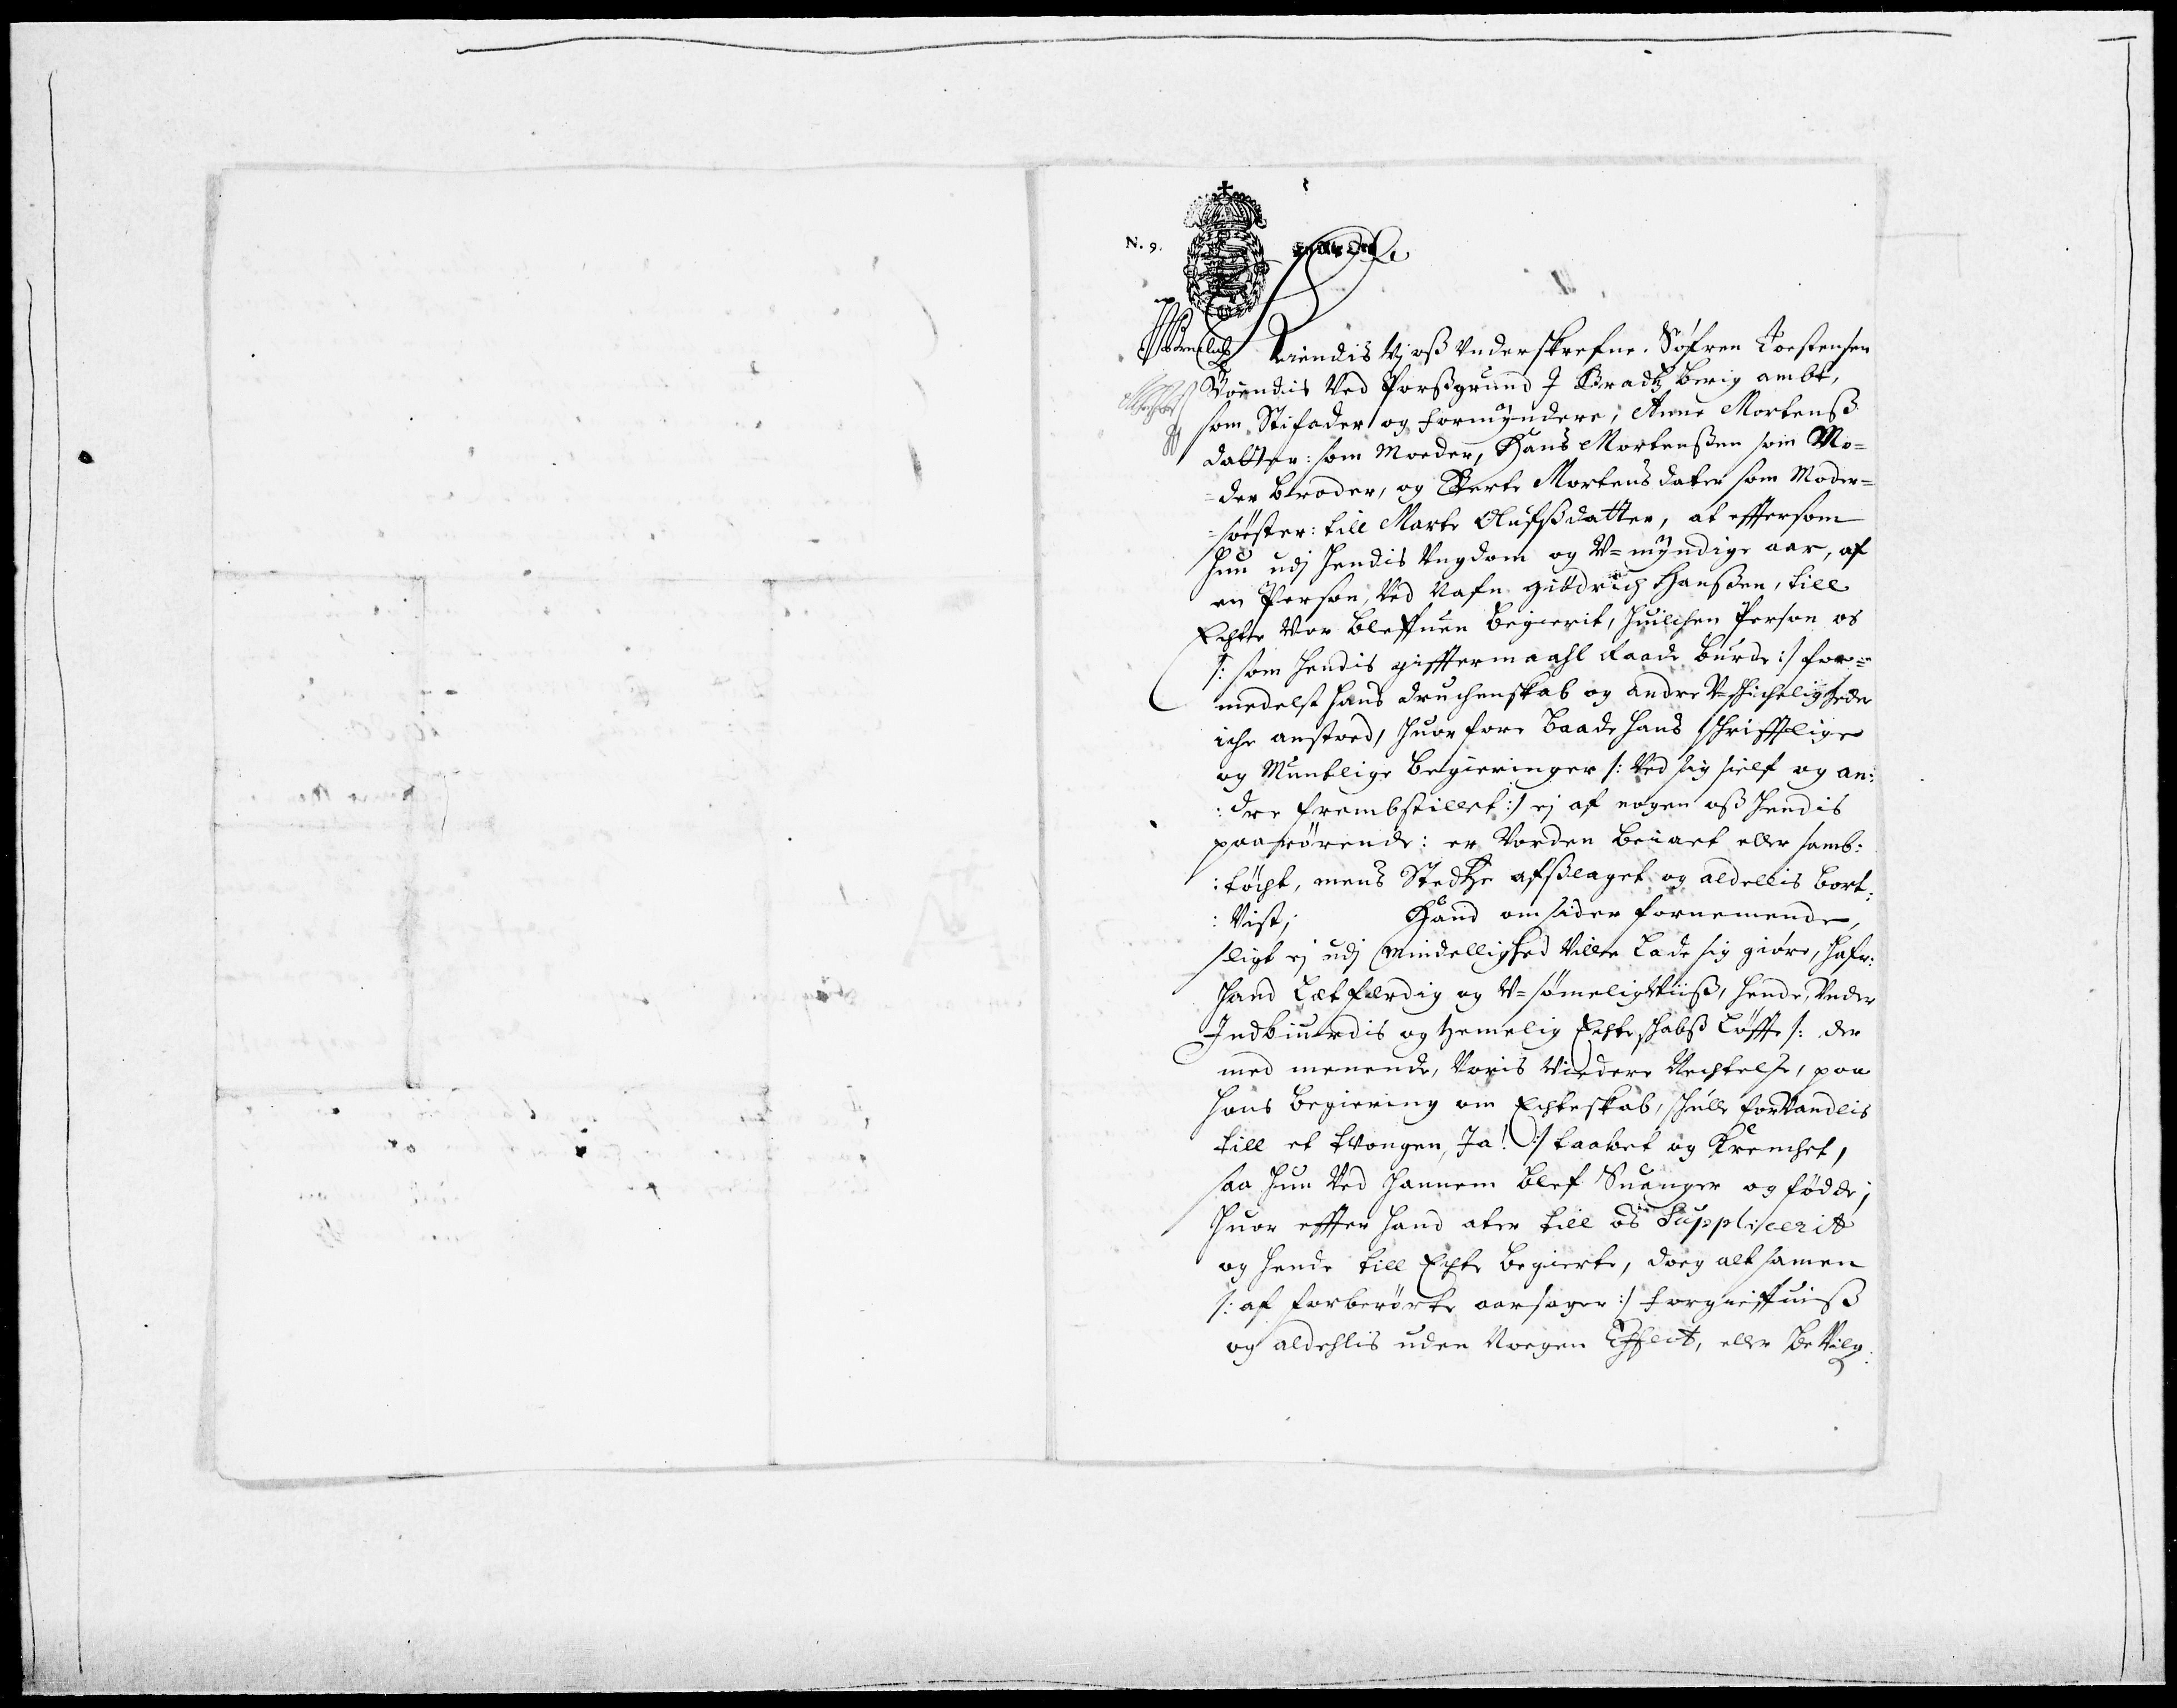 N. 9.
Kiendis Vj oß Underskrefne. Söfren Torstensen
Boendis Ved Porßgrund J Bradtzberig ambt,
som Stifader og formyndere, Anne Mortenß
datter: som Moeder, Hans Mortenßen som Mo=
=der broder, og Berte Mortens dater som Moder=
=söster: till Marte Olufßdatter, at effersom
hun udj hendis Ungdom og U=myndige aar, af
en Person, Ved Nafn Hanßen, till
Echte Vor bleffuen begierit, huilchen Person os
/: som hendis gifftermaahl Raade burde :/ for=
medelst hans druchenskab og andre U=schicheligheder
iche anstoed, huorfore baade hans schrifftlige
og Muntlige begieringer /: Ved sig sielf og an:
:dre frembstillet :/ ej af nogen oß hendis
paarörende: er Vorden beiaet eller samb:
:töcht, mens Stedtze afßlaget og aldellis bort:
:Vist; Hand omsider fornemmende,
sligt ej udj Mindellighed Ville Lade sig giöre, hafr:
hand Letferdig og U=sömeligVüß, hende, Under
Indbiurdis og hemelig Echteschabß Löffte /: der
med menende, Voris Videre Nechtelse, paa
hans begiering om Echteskab, schulle forVandlis
till et tvongen, Ja! :/ taabet og Krenchet,
saa hun Ved hannem blef Suanger og födde;
huor effter hand ater till os Supplicerit
og hende till Echte begierte, doeg alt samen
/: af forberörte aarsager :/ forgieffuiß
og aldehlis uden Noegen Effect, eller beVilg: